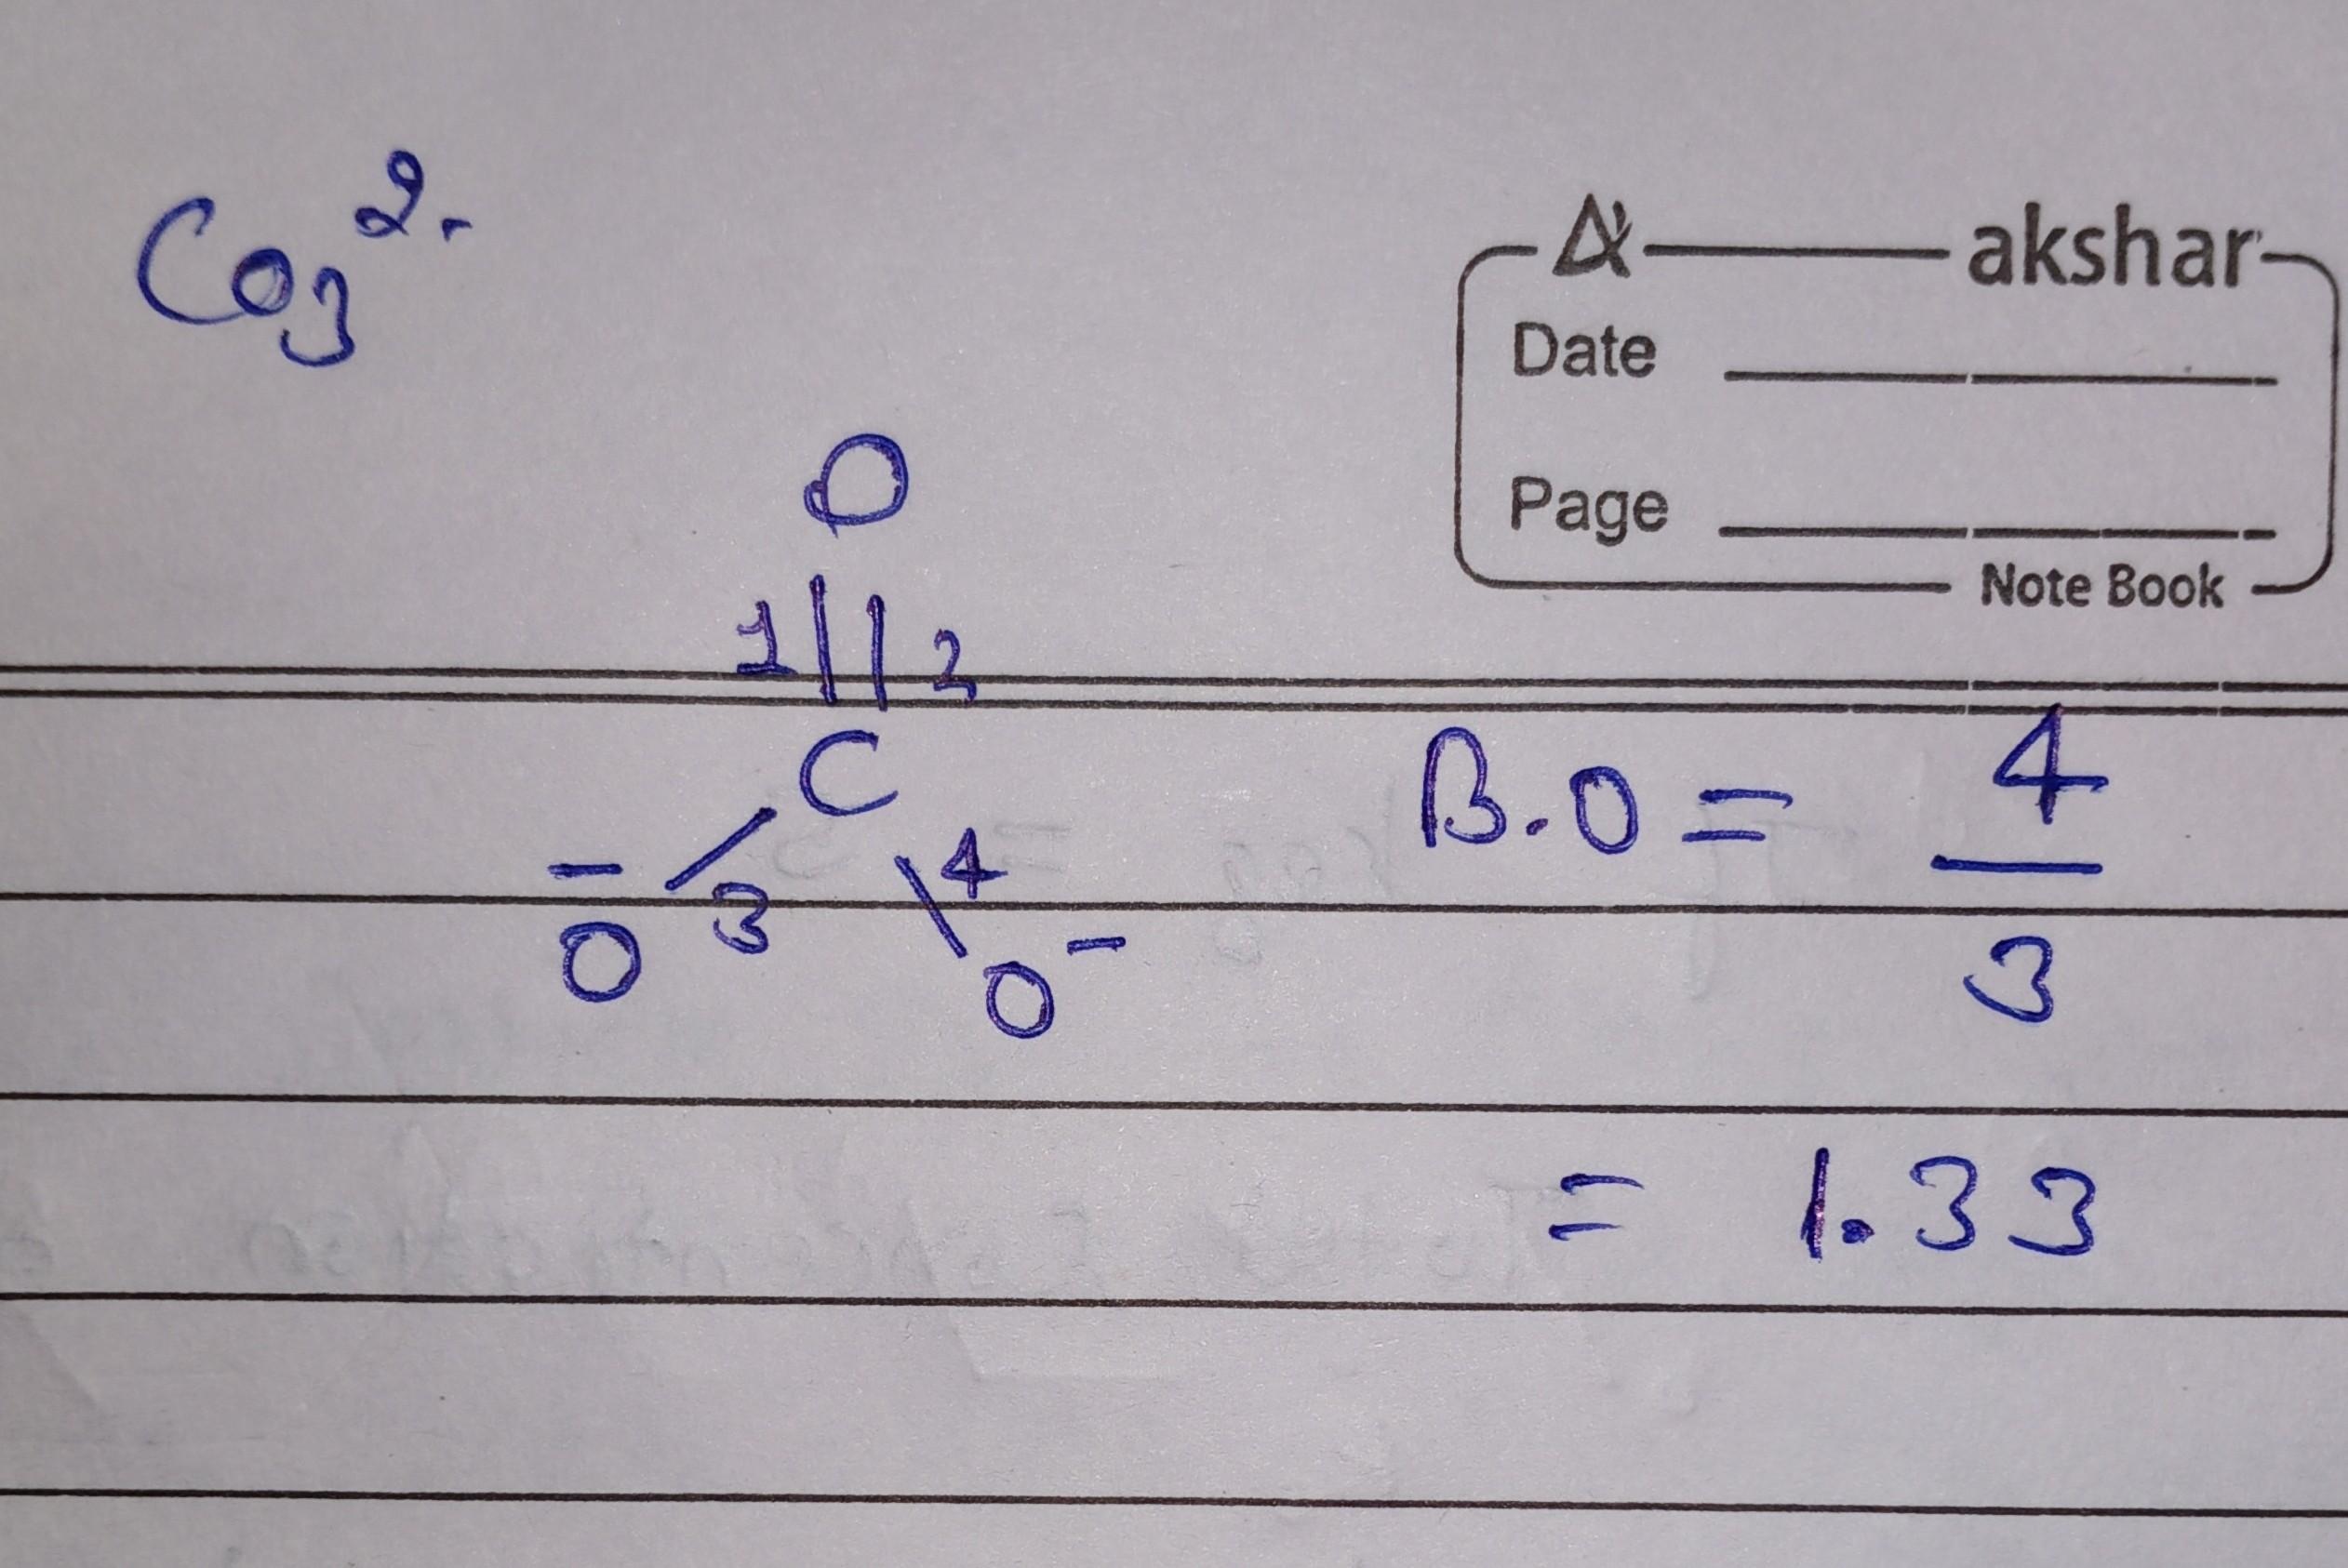 Co₃²⁻
akshar
Date
Page
Note Book
O
1 || 2
C
B.O = 4/3
- / 3 \ 4
O O -
= 1.33